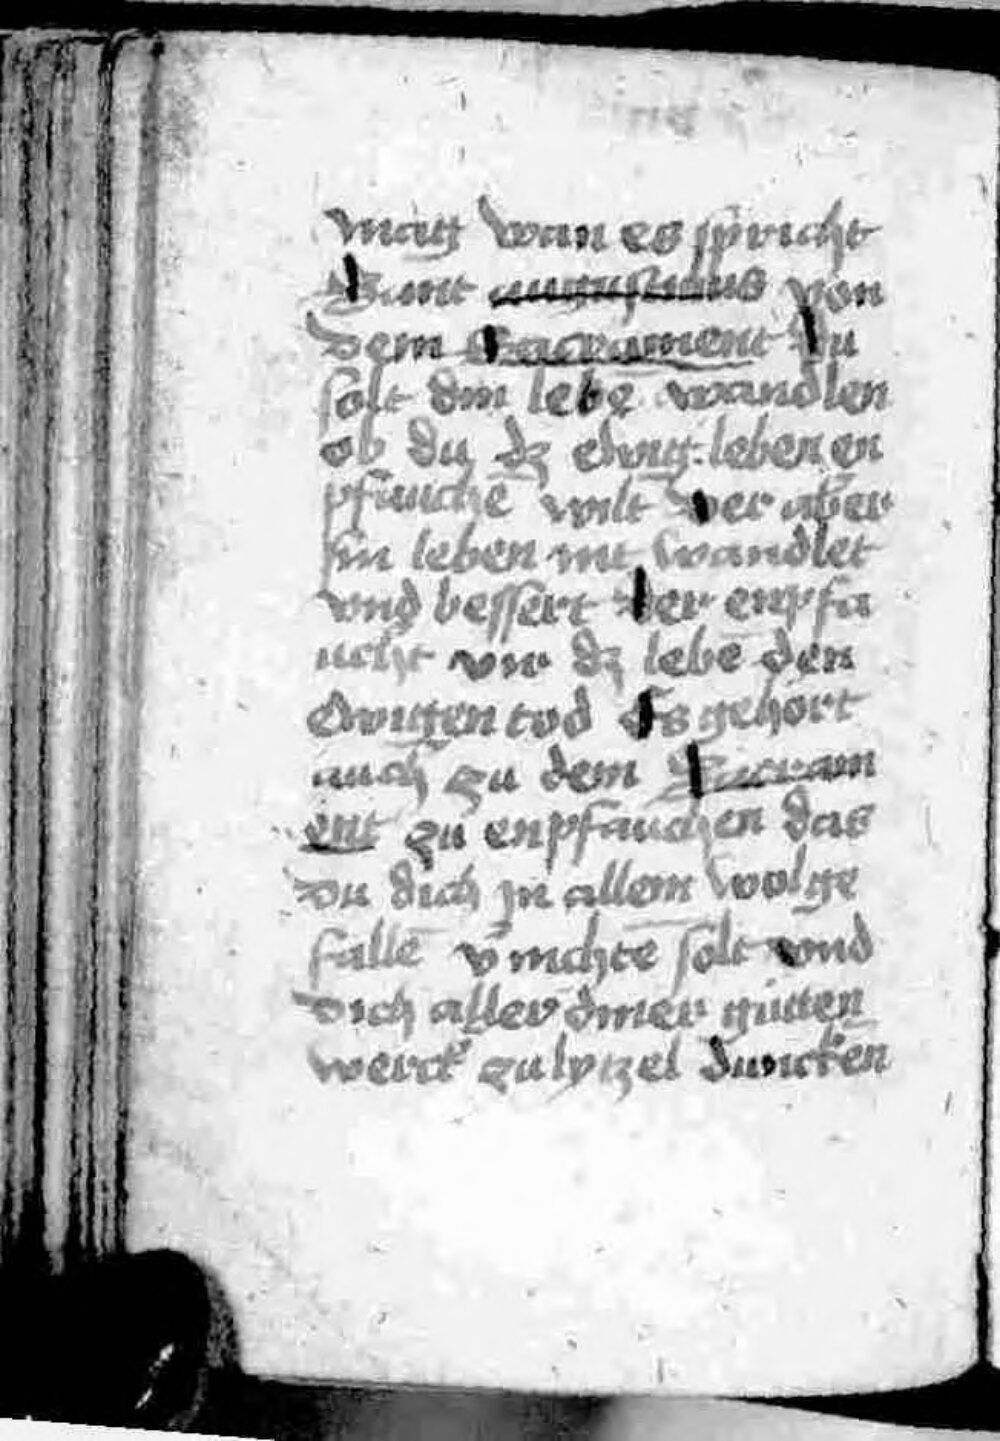 mag wan es spricht
Sant augustinus von
dem Sacrament Du
solt din lebe wandlen
ob du dz ewig leben en
pfauche wilt wer aber
sin leben nit wandlet
vnd bessert der enpfa
ucht vor dz lebē den
Ewigen tod Es gehort
auch zu dem Sacram
ent zu enpfauchen das
du dich jn allem wolge
fallē v̄nichtē solt vnd
dich aller diner gutten
werck zu lytzel duncken